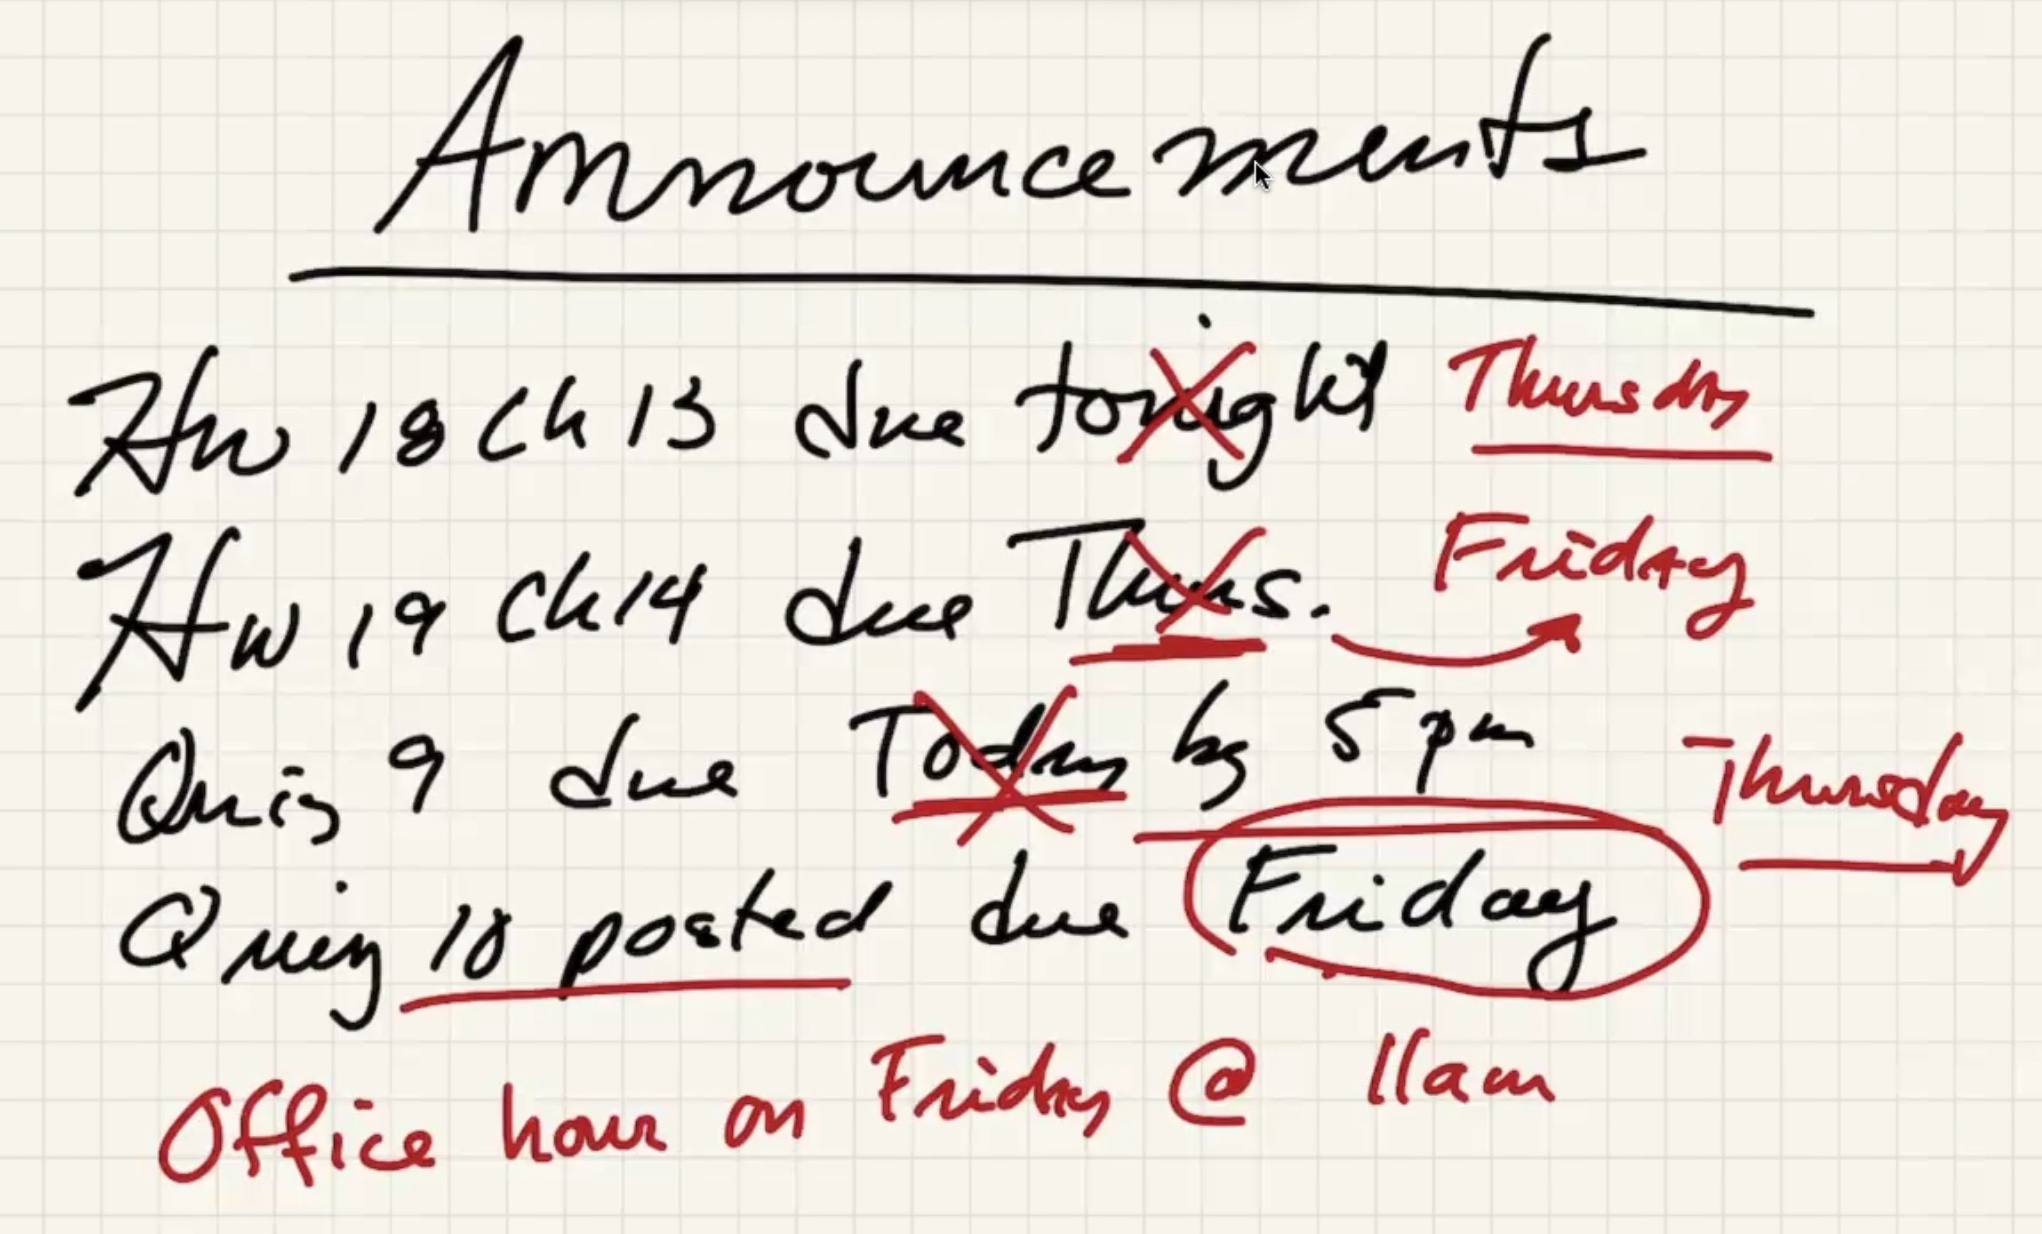 Announcements
Hw 18 Ch 13 due tonight Thursday
Hw 19 Ch 14 due Thurs. Friday
Quiz 9 due Today by 5pm Thursday
Quiz 10 posted due Friday
Office hour on Friday @ 11am